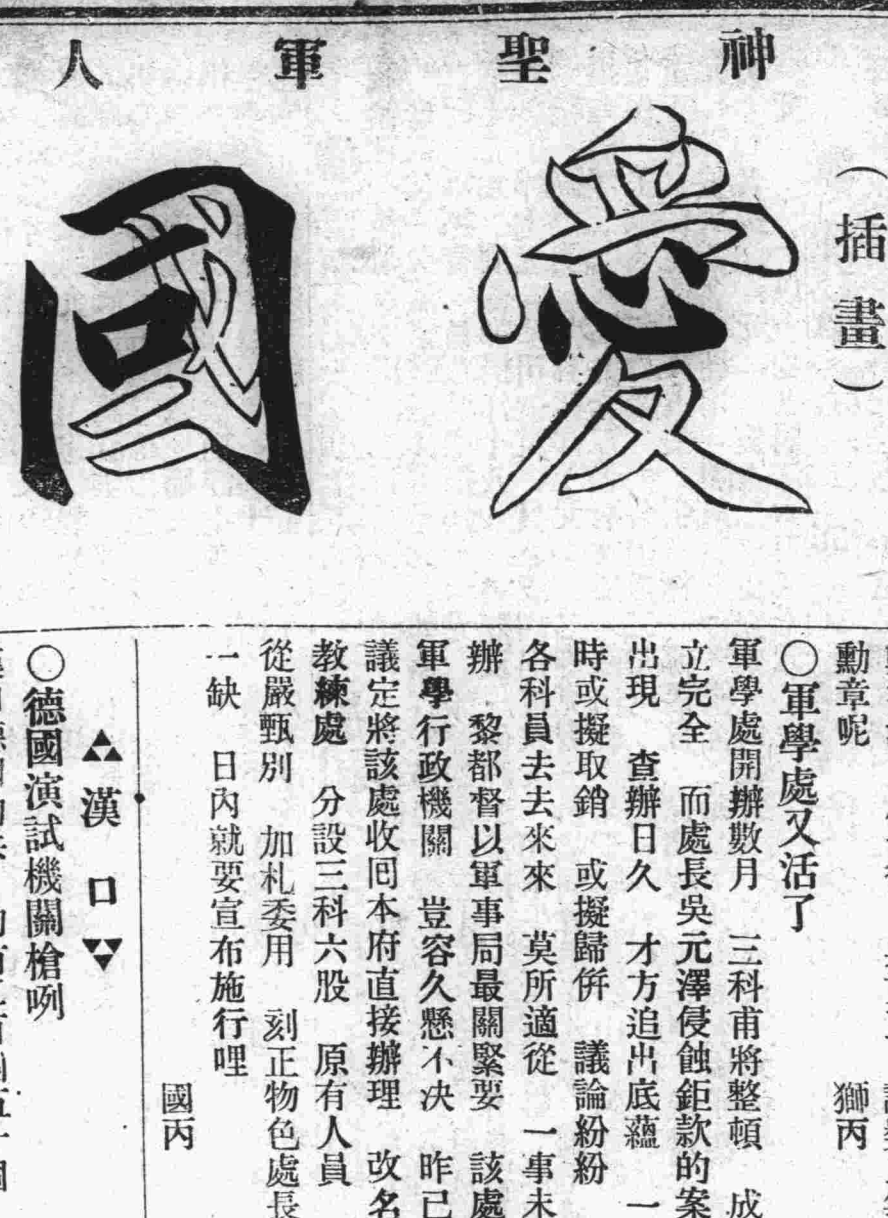 神聖軍人
(插畫)
愛國
勳章呢
獅丙
○軍學處又活了
軍學處開辦數月 三科甫將整頓 成
立完全 而處長吳元澤侵蝕鉅款的案
出現 查辦日久 才方追出底蘊 一
時或擬取銷 或擬歸倂 議論紛紛
各科員去去來來 莫所適從 一事未
辦 黎都督以軍事局最關緊要 該處
軍學行政機關 豈容久懸不決 昨已
議定將該處收囘本府直接辦理 改名
教練處 分設三科六股 原有人員
從嚴甄別 加札委用 刻正物色處長
一缺 日內就要宣布施行哩
國丙
漢口
○德國演試機關槍咧